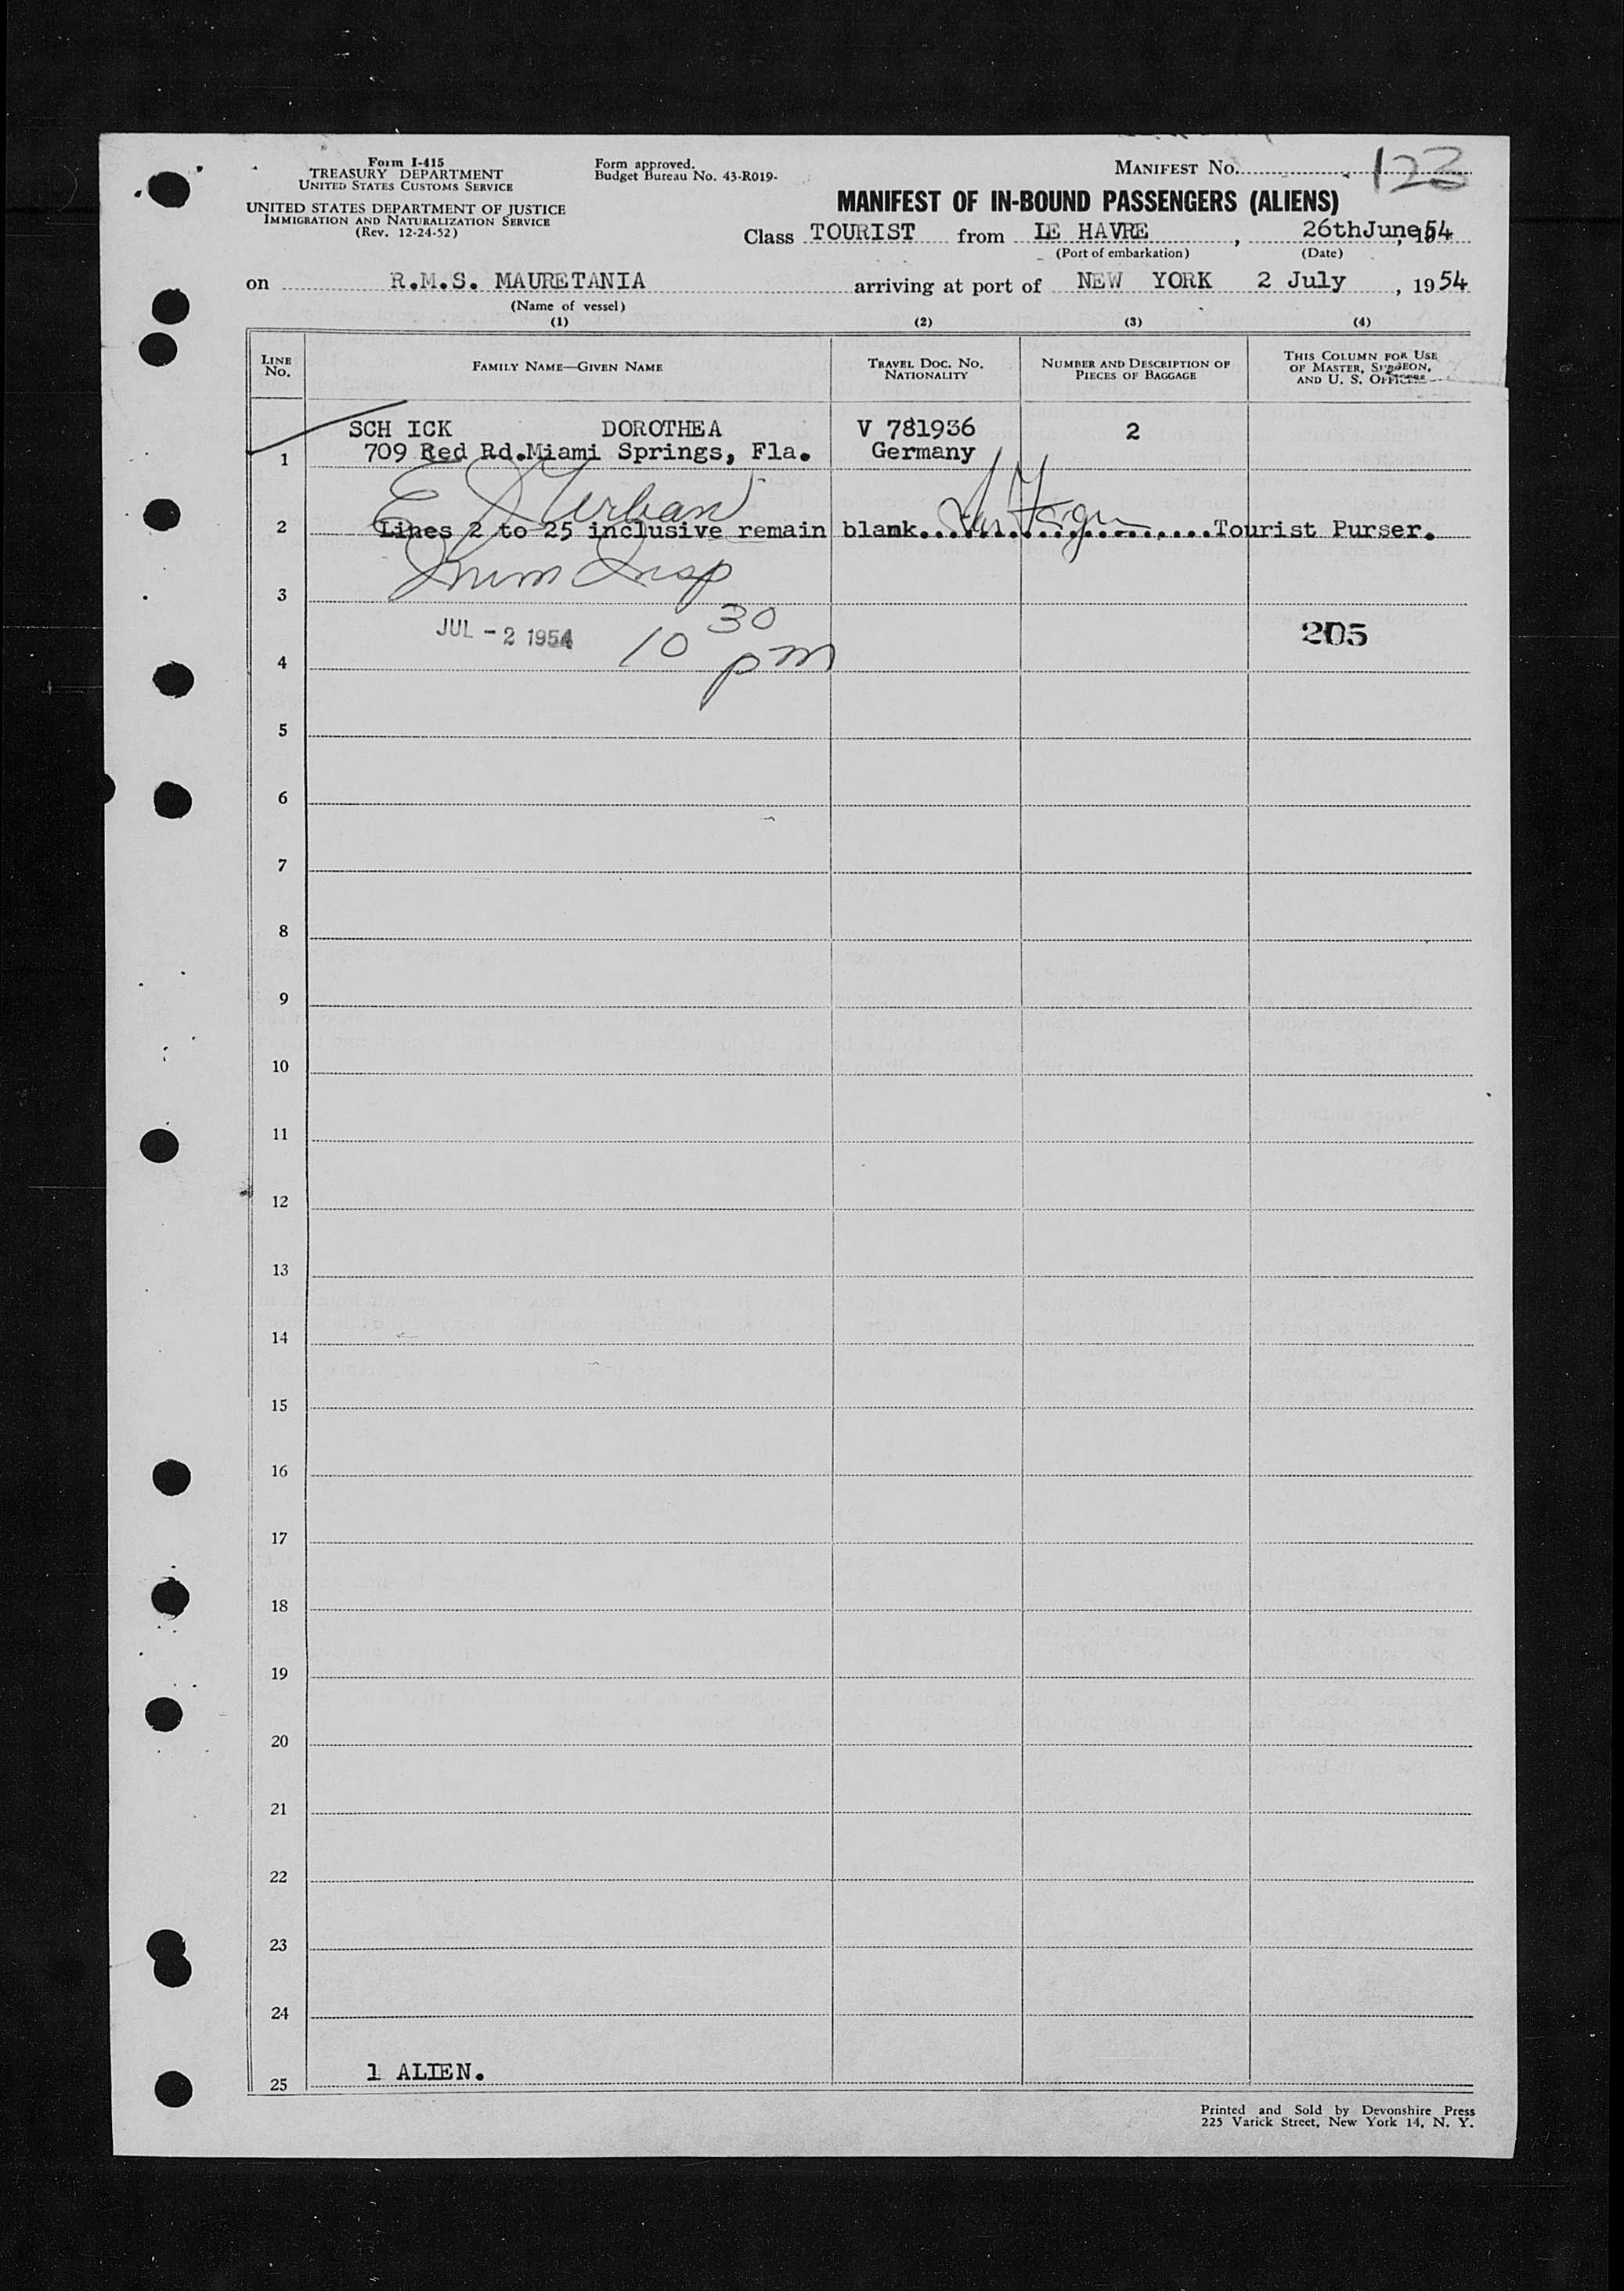 Form I-415
TREASURY DEPARTMENT
UNITED STATES CUSTOMS SERVICE
UNITED STATES DEPARTMENT OF JUSTICE
IMMIGRATION AND NATURALIZATION SERVICE
(Rev. 12-24-52)
Form approved.
Budget Bureau No. 43-R019-
MANIFEST No. 123
MANIFEST OF IN-BOUND PASSENGERS (ALIENS)
Class TOURIST from LE HAVRE, 26thJune, 1954
(Port of embarkation) (Date)
on R.M.S. MAURETANIA arriving at port of NEW YORK 2 July, 1954
(Name of vessel)
(1) (2) (3) (4)
LINE No. FAMILY NAME—GIVEN NAME TRAVEL DOC. NO. NATIONALITY NUMBER AND DESCRIPTION OF PIECES OF BAGGAGE THIS COLUMN FOR USE OF MASTER, SURGEON, AND U. S. OFFICERS
SCH ICK DOROTHEA V 781936 2
1 709 Red Rd.Miami Springs, Fla. Germany
Urban
2 Lines 2 to 25 inclusive remain blank. Tourist Purser.
Imm Insp
3
JUL - 2 1954 10 30 pm 205
4
5
6
7
8
9
10
11
12
13
14
15
16
17
18
19
20
21
22
23
24
25 1 ALIEN.
Printed and Sold by Devonshire Press
225 Varick Street, New York 14, N. Y.